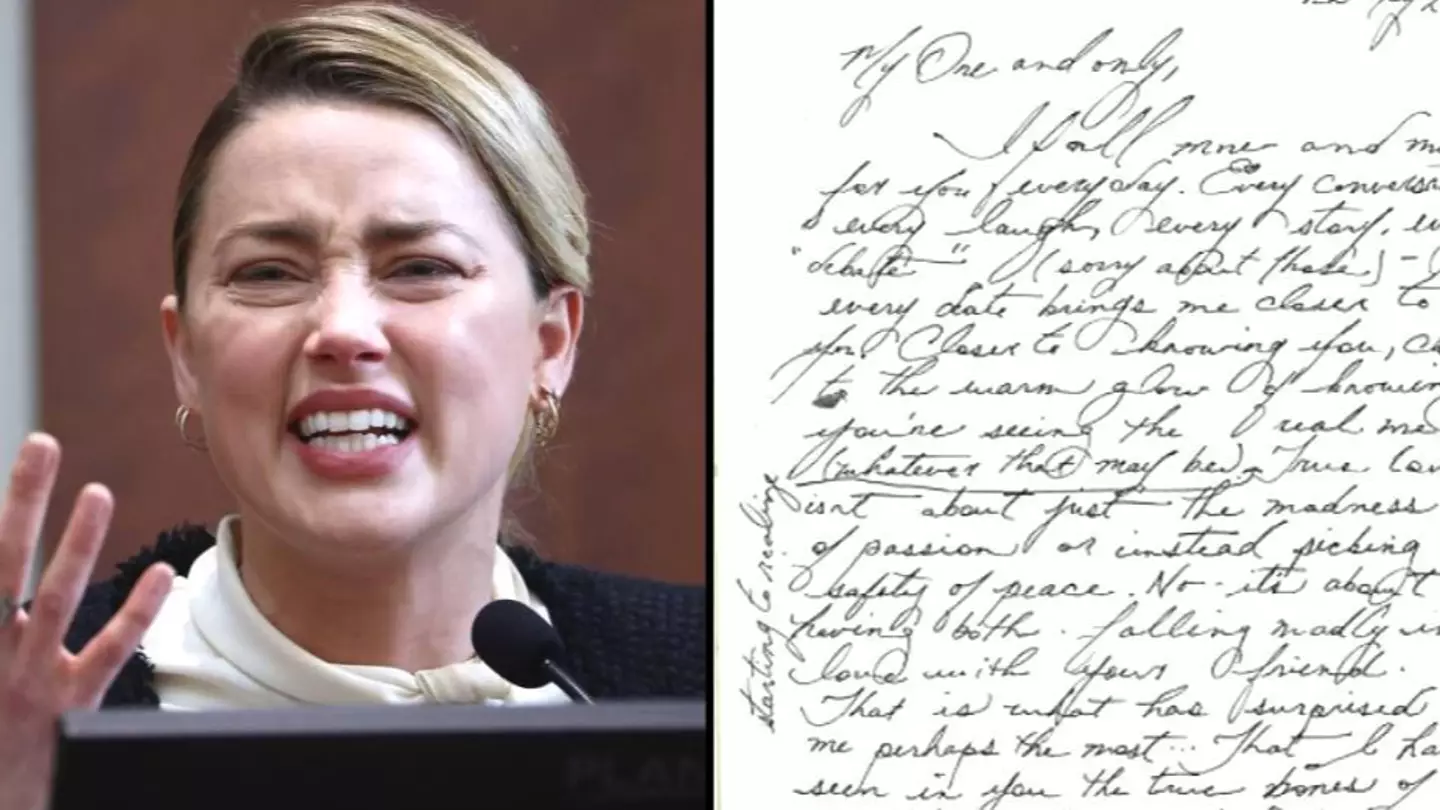 My One and only,
I fall more and m
for you everyday. Every convers
& every laugh, every story, ev
"debate" (sorry about those) -
every date brings me closer to
you. Closer to knowing you, c
to the warm glow of knowing
you're seeing the real me
(whatever that may be). True lov
isnt about just the madness
of passion or instead picking
safety of peace. No - it's about
having both. falling madly in
love with your friend.
That is what has surprised
me perhaps the most... That I ha
seen in you the true bones of
starting to realize